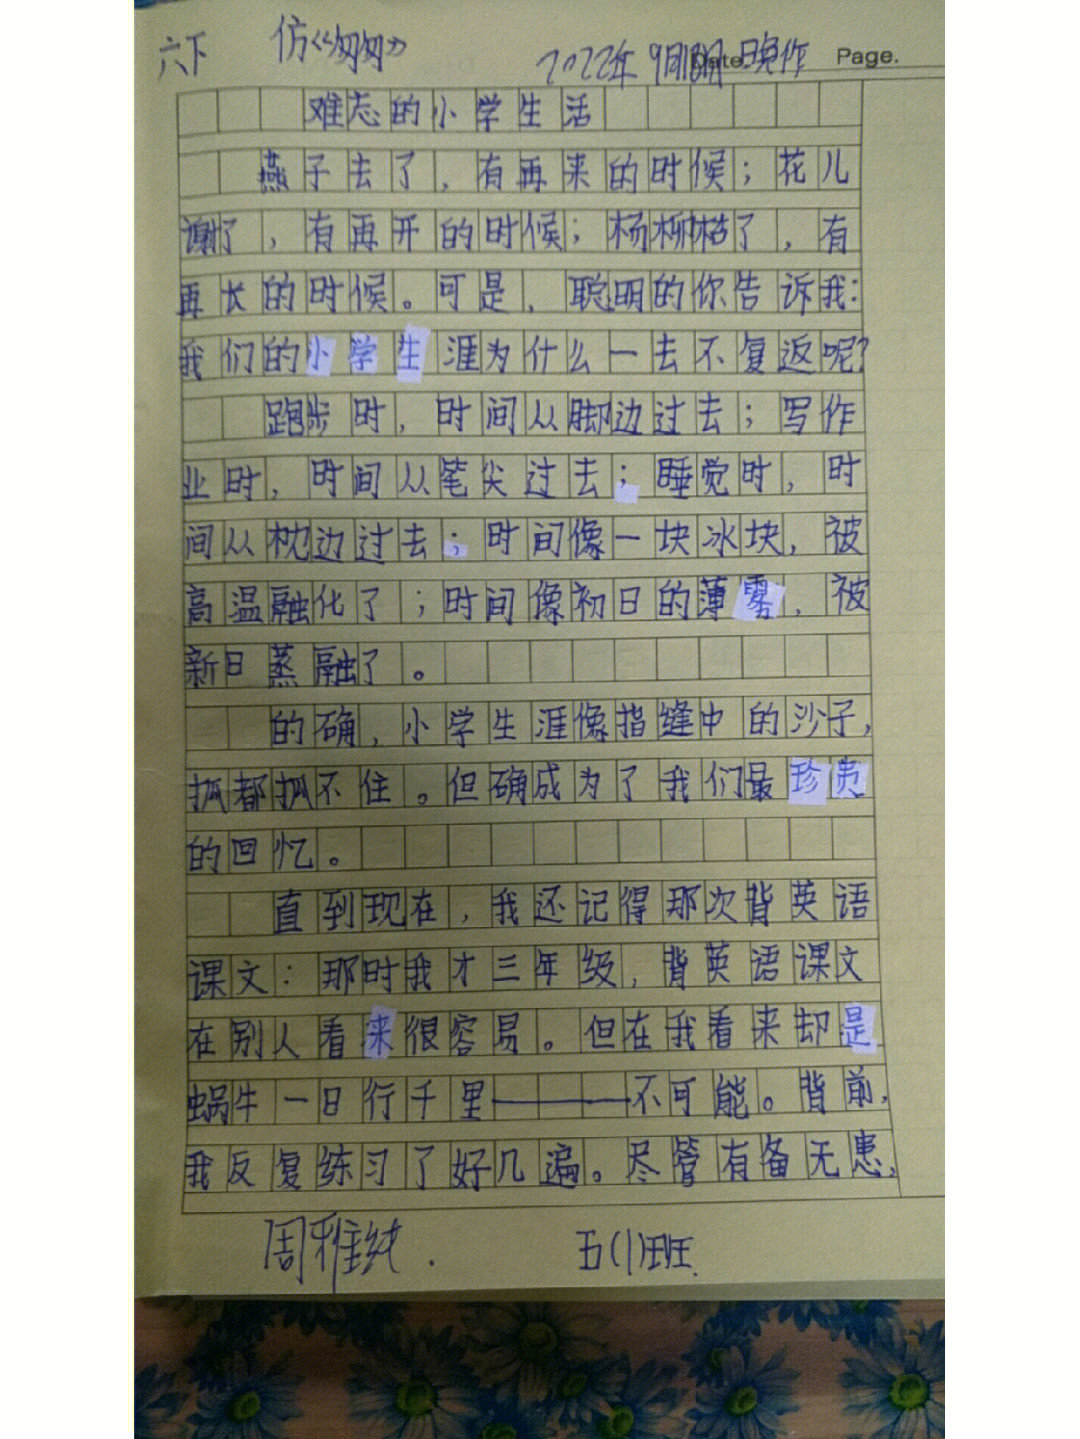 六下 仿《匆匆》
2022年9月18日晚作 Date. Page.
难忘的小学生活
燕子去了，有再来的时候；花儿
谢了，有再开的时候；杨柳枯了，有
再长的时候。可是，聪明的你告诉我：
我们的小学生涯为什么一去不复返呢？
跑步时，时间从脚边过去；写作
业时，时间从笔尖过去；睡觉时，时
间从枕边过去；时间像一块冰块，被
高温融化了；时间像初日的薄雾，被
新日蒸融了。
的确，小学生涯像指缝中的沙子，
抓都抓不住。但确成为了我们最珍贵
的回忆。
直到现在，我还记得那次背英语
课文：那时我才三年级，背英语课文
在别人看来很容易。但在我看来却是
蜗牛一日行千里———不可能。背前，
我反复练习了好几遍。尽管有备无患，
周雅纯. 五(1)班.